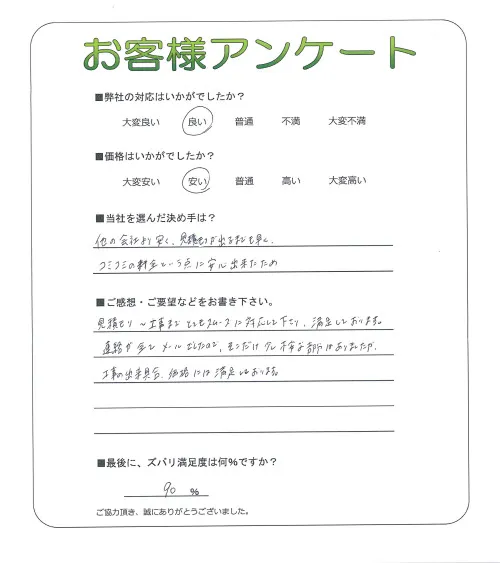 お客様アンケート
■弊社の対応はいかがでしたか？
大変良い 良い 普通 不満 大変不満
■価格はいかがでしたか？
大変安い 安い 普通 高い 大変高い
■当社を選んだ決め手は？
他の会社より安く、見積もりが出るまでも早く、
コミコミの料金という点に安心出来たため
■ご感想・ご要望などをお書き下さい。
見積もり〜工事までとてもスムーズに対応して下さり、満足しております。
連絡が全てメールでしたので、そこだけ少し不安な部分はありましたが、
工事の出来具合、価格には満足しております。
■最後に、ズバリ満足度は何％ですか？
90 ％
ご協力頂き、誠にありがとうございました。